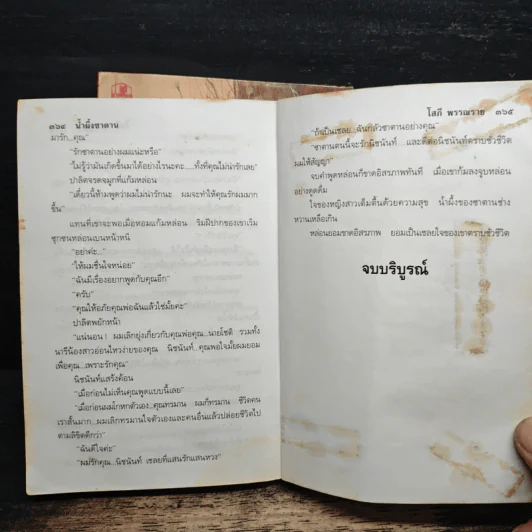 ๓๖๔ น้ำผึ้งซาตาน
มารัก...คุณ"
"รักซาตานอย่างผมแน่นะหรือ"
"ไม่รู้ว่ามันเกิดขึ้นมาได้อย่างไรนะคะ.....ทั้งที่คุณไม่น่ารักเลย"
ปาลิตจรดจมูกที่แก้มหล่อน
"เดี๋ยวนี้ห้ามพูดว่าผมไม่น่ารักนะ ผมจะทำให้คุณรักผมมาก
ขึ้น"
แทนที่เขาจะพอเมื่อหอมแก้มหล่อน ริมฝีปากของเขาเริ่ม
ซุกซนหล่อนเบนหน้าหนี
"อย่าค่ะ..."
"ให้ผมชื่นใจหน่อย"
"ฉันมีเรื่องอยากพูดกับคุณอีก"
"ครับ"
"คุณให้อภัยคุณพ่อฉันแล้วใช่มั้ยคะ"
ปาลิตพยักหน้า
"แน่นอน ! ผมเลิกยุ่งเกี่ยวกับคุณพ่อคุณ...นายโชติ รวมทั้ง
นารีน้องสาวอ่อนไหวง่ายของคุณ นิชนันท์...คุณพอใจมั้ยผมยอม
เพื่อคุณ...เพราะรักคุณ"
นิชนันท์แสร้งค้อน
"เมื่อก่อนไม่เห็นคุณพูดแบบนี้เลย"
"เมื่อก่อนผมโกหกตัวเอง...คุณทรมาน ผมก็ทรมาน ชีวิตคน
เราสั้นมาก...ผมเลิกทรมานใจตัวเองและคนอื่นแล้วปล่อยชีวิตไป
ตามลิขิตดีกว่า"
"ฉันดีใจค่ะ"
"ผมรักคุณ...นิชนันท์ เชลยที่แสนรักแสนหวง"
โสภี พรรณราย ๓๖๕
"ถ้าเป็นเชลย...ฉันกลัวซาตานอย่างคุณ"
"ซาตานตนนี้จะรักนิชนันท์...และดีต่อนิชนันท์ตราบชั่วชีวิต
ผมให้สัญญา"
จบคำพูดหล่อนก็ขาดอิสรภาพทันที เมื่อเขาก้มลงจูบหล่อน
อย่างดูดดื่ม
ใจของหญิงสาวเต็มตื้นด้วยความสุข น้ำผึ้งของซาตานช่าง
หวานเหลือเกิน
หล่อนยอมขาดอิสรภาพ ยอมเป็นเชลยใจของเขาตราบชั่วชีวิต
จบบริบูรณ์